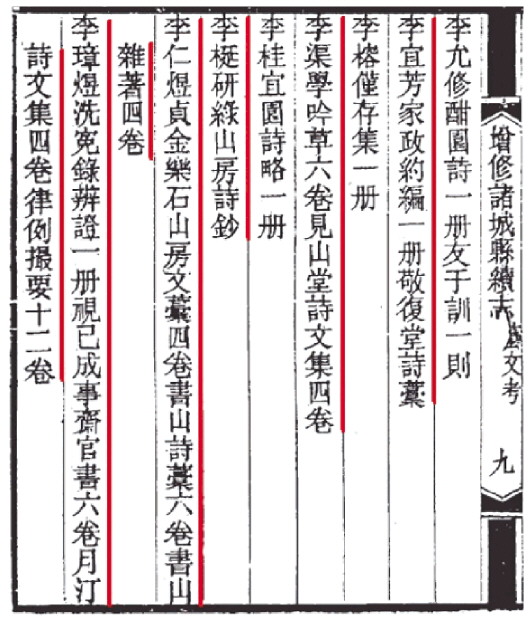 增修諸城縣續志 藝文考 九
李允修酣園詩一册友于訓一則
李宜芳家政約編一册敬復堂詩藁
李榕僅存集一册
李渠學吟草六卷見山堂詩文集四卷
李桂宜園詩略一册
李梃研綠山房詩鈔
李仁煜貞金樂石山房文藁四卷書山詩藁六卷書山
雜著四卷
李璋煜洗寃錄辨證一册視已成事齋官書六卷月汀
詩文集四卷律例撮要十二卷